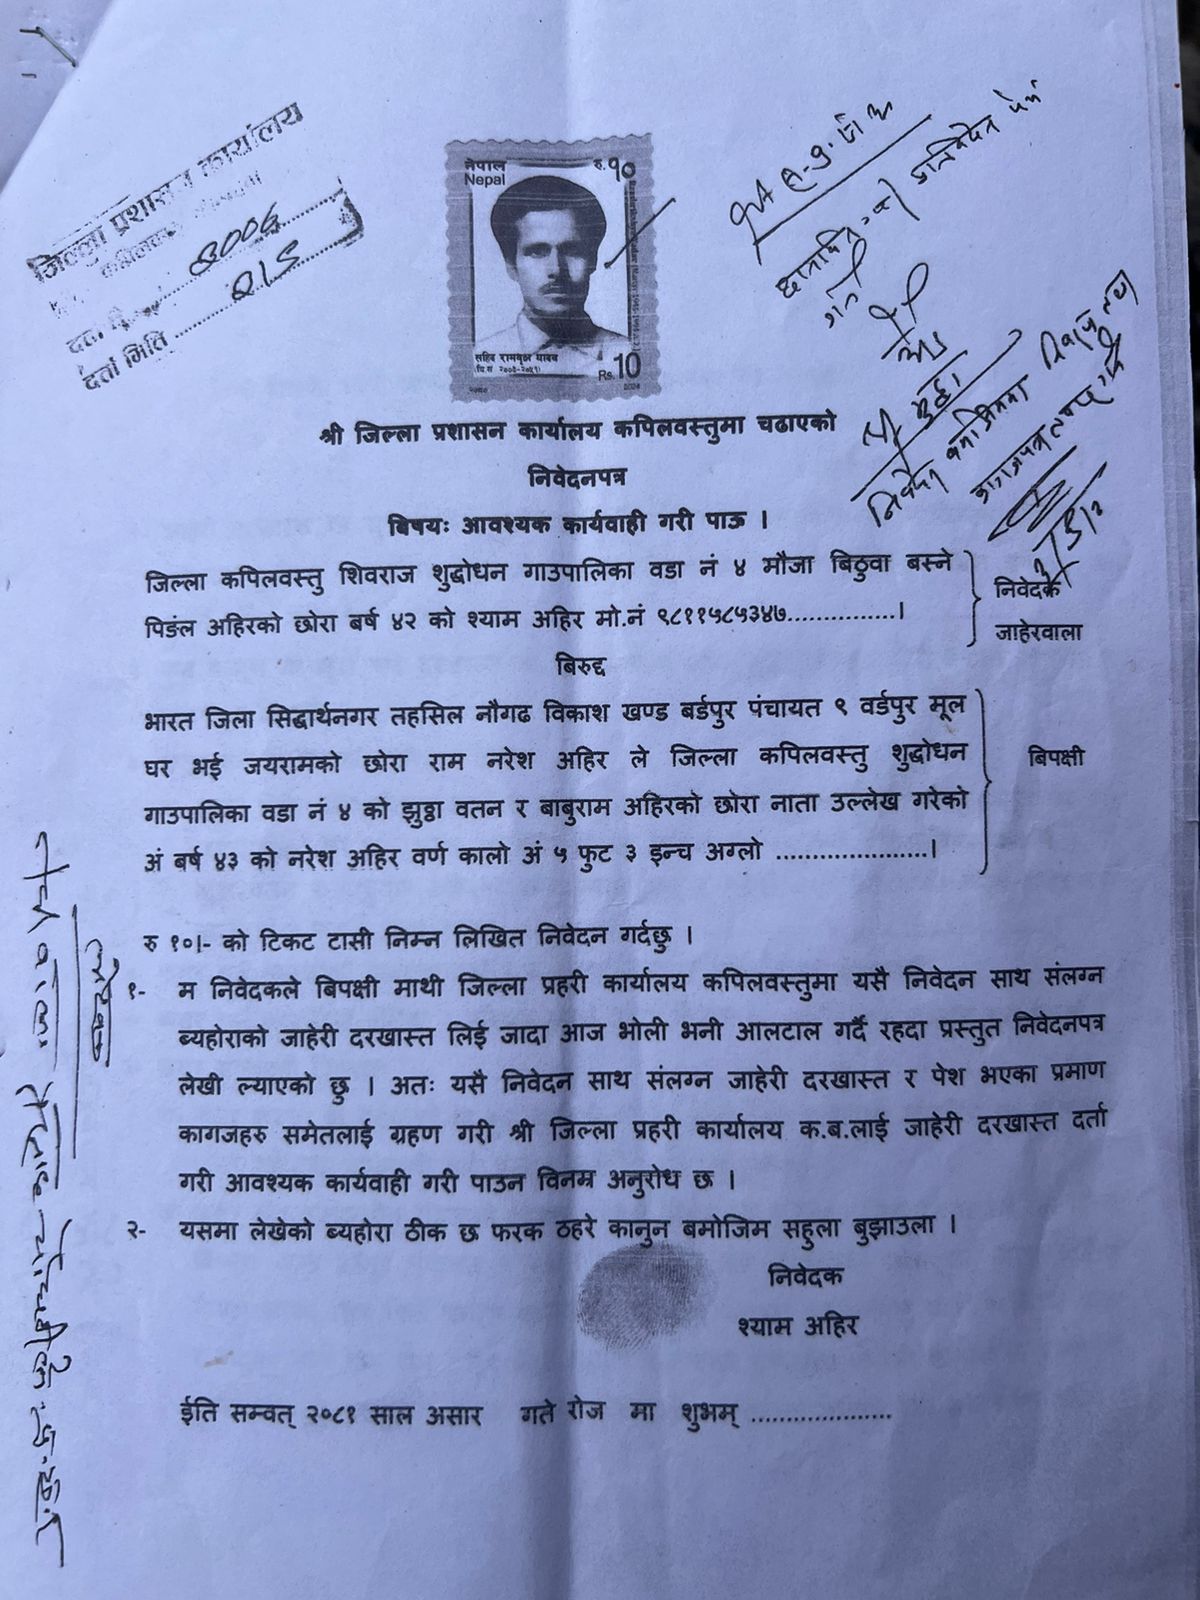 जिल्ला प्रशासन कार्यालय
दर्ता मिति
नेपाल
Nepal
रु.१०
Rs.10
श्री जिल्ला प्रशासन कार्यालय कपिलवस्तुमा चढाएको
निवेदनपत्र
बिषयः आवश्यक कार्यवाही गरी पाऊ ।
जिल्ला कपिलवस्तु शिवराज शुद्धोधन गाउपालिका वडा नं ४ मौजा बिठुवा बस्ने
पिङंल अहिरको छोरा बर्ष ४२ को श्याम अहिर मो.नं ९८११५८५३४७...............।
निवेदक
जाहेरवाला
बिरुद्द
भारत जिला सिद्धार्थनगर तहसिल नौगढ विकाश खण्ड बर्डपुर पंचायत ९ वर्डपुर मूल
घर भई जयरामको छोरा राम नरेश अहिर ले जिल्ला कपिलवस्तु शुद्धोधन
गाउपालिका वडा नं ४ को झुठ्ठा वतन र बाबुराम अहिरको छोरा नाता उल्लेख गरेको
अं बर्ष ४३ को नरेश अहिर वर्ण कालो अं ५ फुट ३ इन्च अग्लो ......................।
बिपक्षी
रु १०।- को टिकट टासी निम्न लिखित निवेदन गर्दछु ।
१- म निवेदकले बिपक्षी माथी जिल्ला प्रहरी कार्यालय कपिलवस्तुमा यसै निवेदन साथ संलग्न
ब्यहोराको जाहेरी दरखास्त लिई जादा आज भोली भनी आलटाल गर्दै रहदा प्रस्तुत निवेदनपत्र
लेखी ल्याएको छु । अतः यसै निवेदन साथ संलग्न जाहेरी दरखास्त र पेश भएका प्रमाण
कागजहरु समेतलाई ग्रहण गरी श्री जिल्ला प्रहरी कार्यालय क.ब.लाई जाहेरी दरखास्त दर्ता
गरी आवश्यक कार्यवाही गरी पाउन विनम्र अनुरोध छ ।
२- यसमा लेखेको ब्यहोरा ठीक छ फरक ठहरे कानुन बमोजिम सहुला बुझाउला ।
निवेदक
श्याम अहिर
ईति सम्वत् २०८१ साल असार गते रोज मा शुभम् ....................